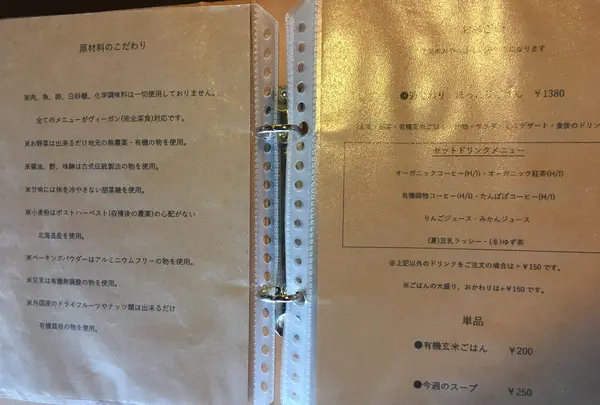 原材料のこだわり
※肉、魚、卵、白砂糖、化学調味料は一切使用しておりません。
全てのメニューがヴィーガン(完全菜食)対応です。
※お野菜は出来るだけ地元の無農薬・有機の物を使用。
※醤油、酢、味醂は古式伝統製法の物を使用。
※甘味には体を冷やさない甜菜糖を使用。
※小麦粉はポストハーベスト(収穫後の農薬)の心配がない
北海道産を使用。
※ベーキングパウダーはアルミニウムフリーの物を使用。
※豆乳は有機無調整の物を使用。
※外国産のドライフルーツやナッツ類は出来るだけ
有機栽培の物を使用。
になります
¥1380
・有機玄米ごはん・ ・サラダ・ミニデザート・食後のドリンク
セットドリンクメニュー
オーガニックコーヒー(H/I)・オーガニック紅茶(H/I)
有機穀物コーヒー(H/I)・たんぽぽコーヒー(H/I)
りんごジュース・みかんジュース
(夏)豆乳ラッシー・(冬)ゆず茶
※上記以外のドリンクをご注文の場合は+¥150です。
※ごはんの大盛り、おかわりは+¥150です。
単品
●有機玄米ごはん ¥200
●今週のスープ ¥250